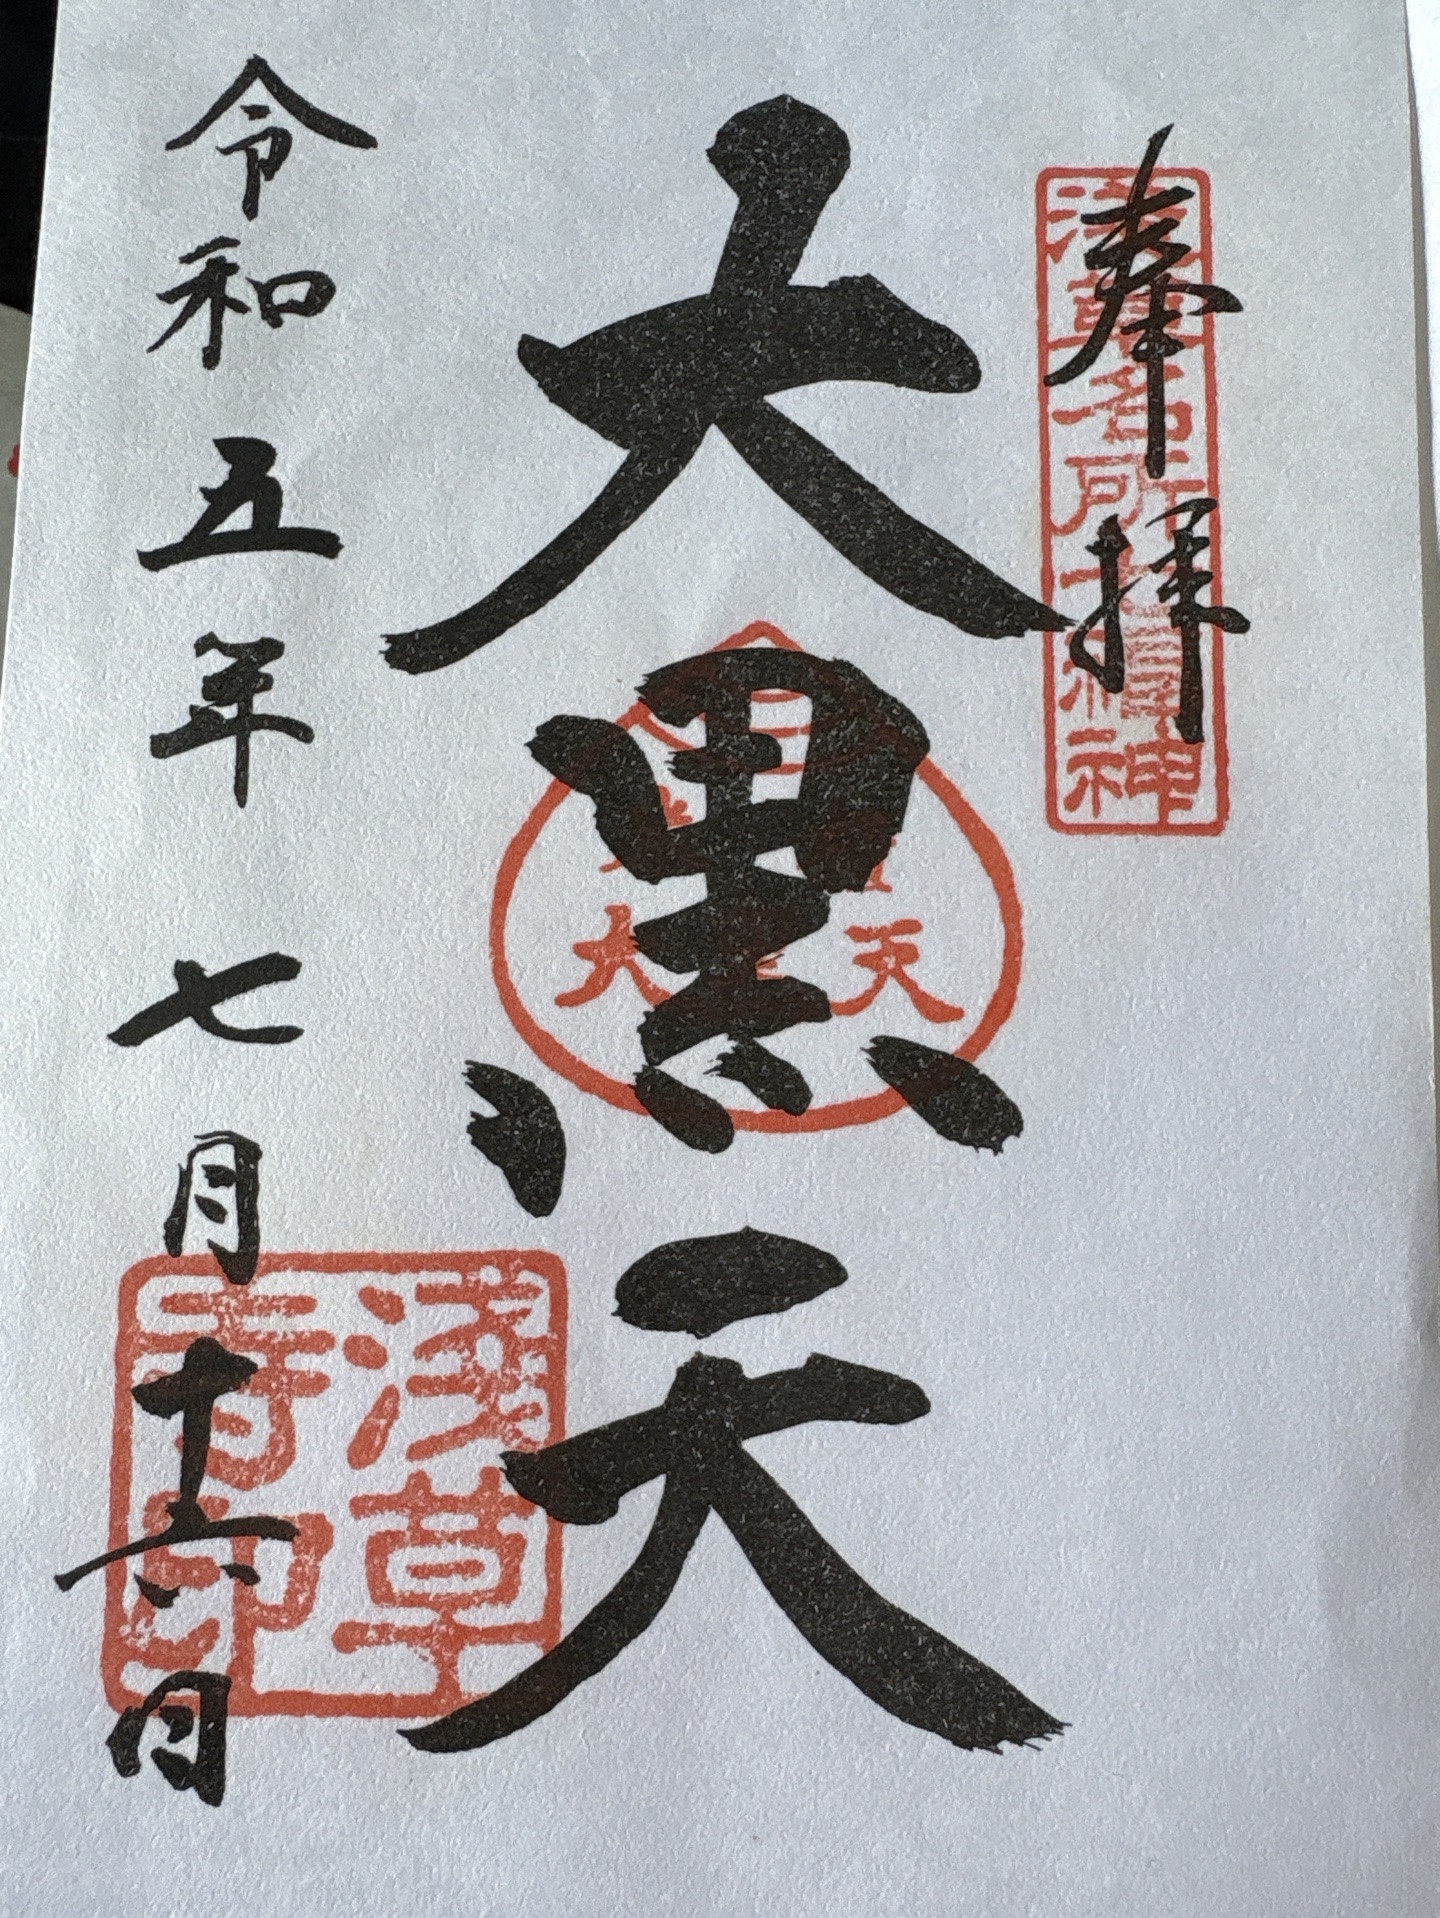 奉拝
浅草名所七福神
大黒天
大 天
令和五年 七月十六日
淺草
寺印